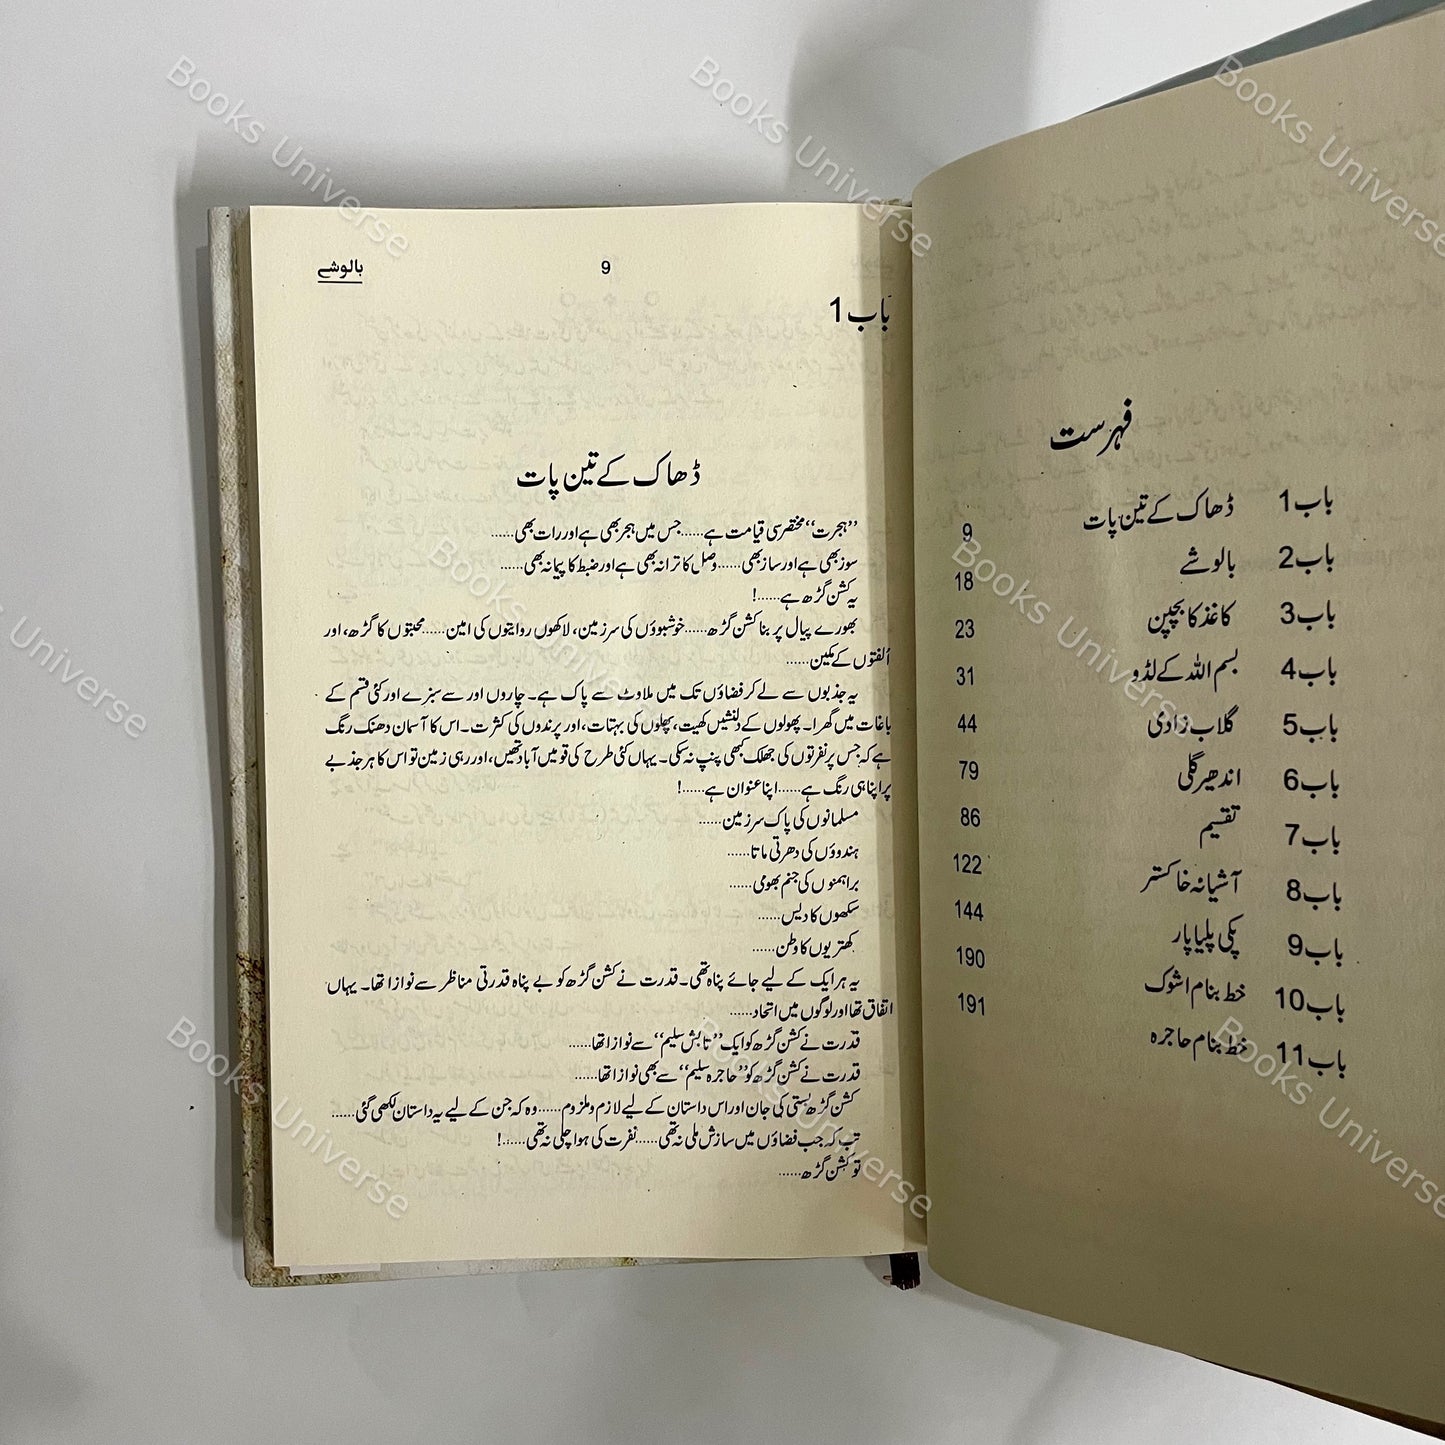 فہرست
باب 1 ڈھاک کے تین پات 9
باب 2 بالوشے 18
باب 3 کاغذ کا بچپن 23
باب 4 بسم اللہ کے لڈو 31
باب 5 گلاب زادی 44
باب 6 اندھیر گلی 79
باب 7 تقسیم 86
باب 8 آشیانہ خاکستر 122
باب 9 پکی پلیا پار 144
باب 10 خط بنام اشوک 190
باب 11 خط بنام حاجرہ 191
بالوشے 9
باب 1
ڈھاک کے تین پات
’’ہجرت‘‘ مختصر سی قیامت ہے......جس میں ہجر بھی ہے اور رات بھی......
سوز بھی ہے اور ساز بھی......وصل کا ترانہ بھی ہے اور ضبط کا پیمانہ بھی......
یہ کشن گڑھ ہے......!
بھورے پیال پر بنا کشن گڑھ......خوشبوؤں کی سرزمین، لاکھوں روایتوں کی امین......محبتوں کا گڑھ، اور
اُلفتوں کے مکین......
یہ جذبوں سے لے کر فضاؤں تک میں ملاوٹ سے پاک ہے۔ چاروں اور سے سبزے اور کئی قسم کے
باغات میں گھرا۔ پھولوں کے دلنشیں کھیت، پھلوں کی بہتات، اور پرندوں کی کثرت۔ اس کا آسمان دھنک رنگ
ہے کہ جس پر نفرتوں کی جھلک کبھی پنپ نہ سکی۔ یہاں کئی طرح کی قومیں آباد تھیں، اور رہی زمین تو اس کا ہر جذبے
پر اپنا ہی رنگ ہے......اپنا عنوان ہے......!
مسلمانوں کی پاک سرزمین......
ہندوؤں کی دھرتی ماتا......
براہمنوں کی جنم بھومی......
سکھوں کا دیس......
کھتریوں کا وطن......
یہ ہر ایک کے لیے جائے پناہ تھی۔ قدرت نے کشن گڑھ کو بے پناہ قدرتی مناظر سے نوازا تھا۔ یہاں
اتفاق تھا اور لوگوں میں اتحاد......
قدرت نے کشن گڑھ کو ایک ’’تابش سلیم‘‘ سے نوازا تھا......
قدرت نے کشن گڑھ کو ’’حاجرہ سلیم‘‘ سے بھی نوازا تھا......
کشن گڑھ بستی کی جان اور اس داستان کے لیے لازم و ملزوم......وہ کہ جن کے لیے یہ داستان لکھی گئی......
تب کہ جب فضاؤں میں سازش ملی نہ تھی......نفرت کی ہوا چلی نہ تھی......!
تو کشن گڑھ......
Books Universe
Books Universe
Books Universe
Books Universe
Books Universe
Books Universe
Books Universe
Books Universe